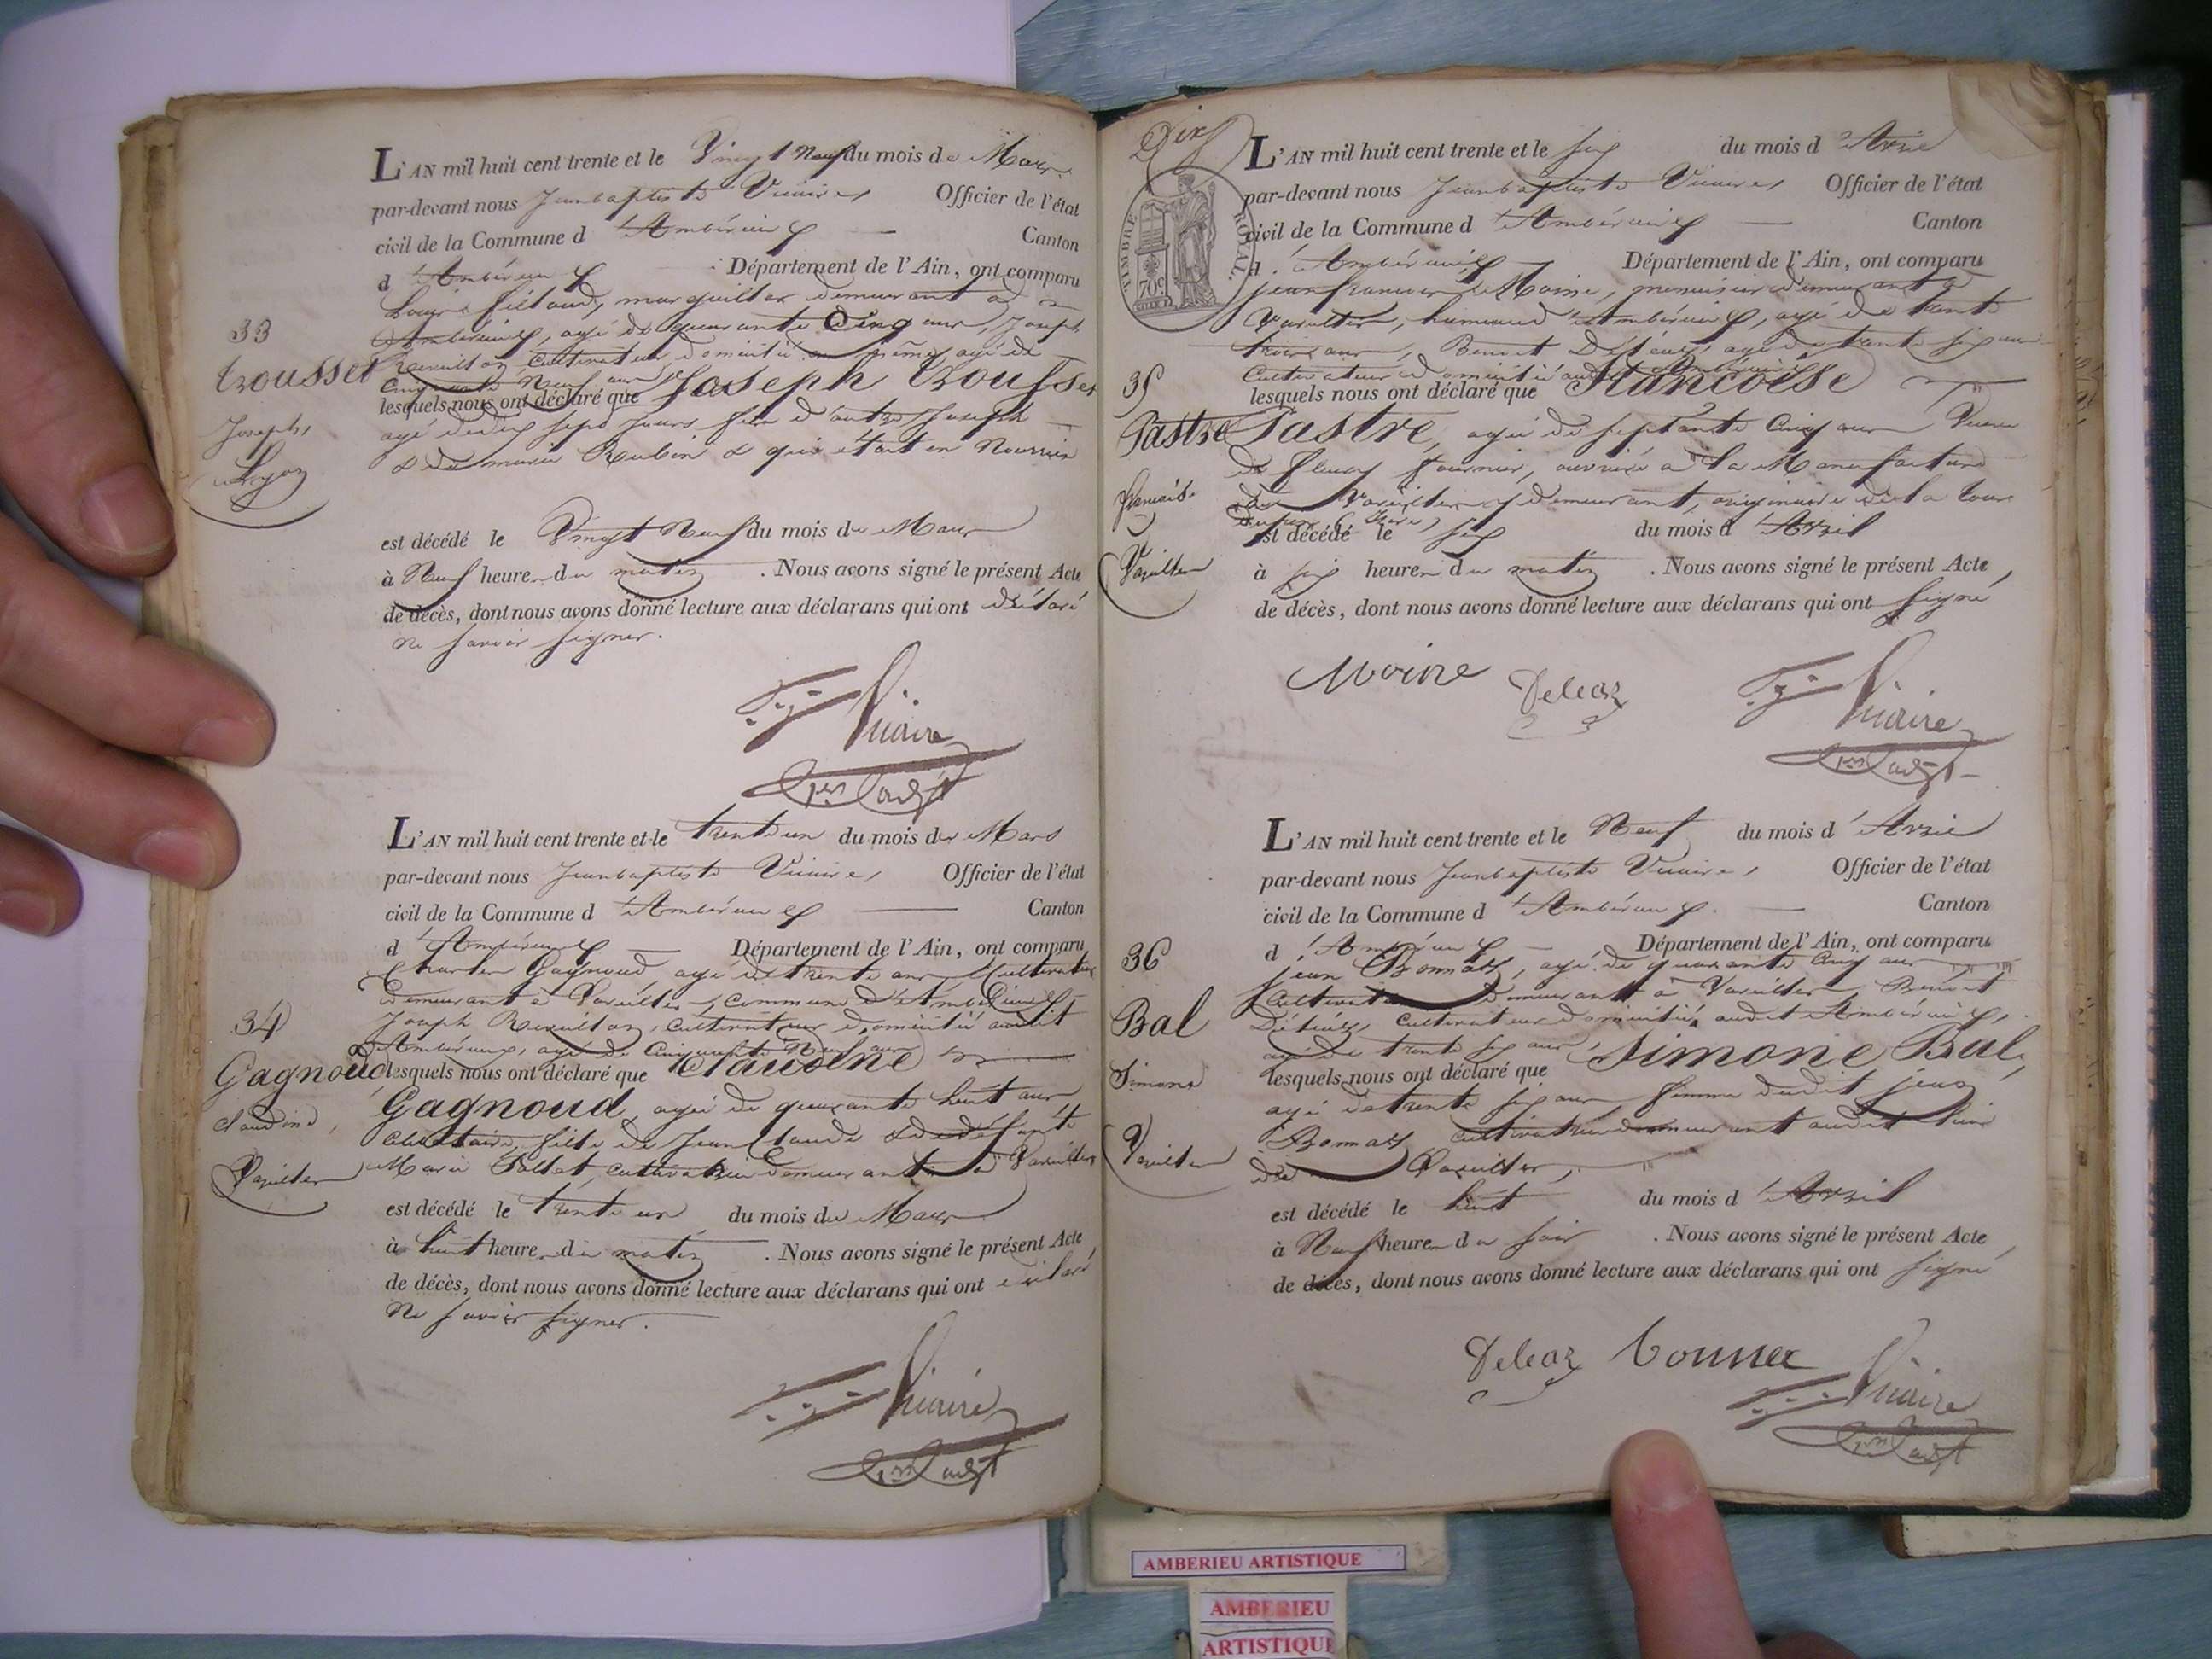 L'AN mil huit cent trente et le Vingt Neuf du mois de Mars
par-devant nous Jeanbaptiste Vicaire, Officier de l'état
civil de la Commune d'Ambérieux Canton
d'Ambérieux Département de l'Ain, ont comparu
Louis marguillier demeurant à
Ambérieux, agé de quarante Cinq ans, Joseph
cultivateur domicilié au même, agé de
Cinquante Neuf ans
33
trousset
Joseph,
Lyon
lesquels nous ont déclaré que Joseph trousset
agé de dix sept jours fils d'autre Joseph
& de marie Rubin & qui était en Nourrice
est décédé le Vingt Neuf du mois de Mars
à Neuf heures du matin. Nous avons signé le présent Acte
de décès, dont nous avons donné lecture aux déclarans qui ont déclaré
ne savoir signer.
Vicaire
L'AN mil huit cent trente et le trente un du mois de Mars
par-devant nous Jeanbaptiste Vicaire, Officier de l'état
civil de la Commune d'Ambérieux Canton
d'Ambérieux Département de l'Ain, ont comparu
Charles Gagnoud, agé de trente ans, Cultivateur
demeurant à Vareilles, commune d'Ambérieux
Joseph cultivateur domicilié audit
Ambérieux, agé de Cinquante Neuf ans
34
Gagnoud
claudine,
Vareilles
lesquels nous ont déclaré que Claudine
Gagnoud, agée de quarante huit ans
Célibataire, fille de Jean Claude & de défunte
Marie cultivatrice demeurant à Vareilles
est décédé le trente un du mois de Mars
à huit heures du matin. Nous avons signé le présent Acte,
de décès, dont nous avons donné lecture aux déclarans qui ont déclaré
Ne savoir signer.
Vicaire
Dix
TIMBRE ROYAL.
70c
L'AN mil huit cent trente et le six du mois d'Avril
par-devant nous Jeanbaptiste Vicaire, Officier de l'état
civil de la Commune d'Ambérieux Canton
d'Ambérieux Département de l'Ain, ont comparu
Jean francois Moine, menuisier demeurant à
Vareilles, hameau d'Ambérieux, agé de trente
trois ans, Benoit agé de trente six ans
Cultivateur domicilié audit Ambérieux
35
Pastre
francoise
Vareilles
lesquels nous ont déclaré que Francoise
Pastre, agée de septante Cinq ans Veuve
de fleury fournier, ouvrière à la Manufacture
de Vareilles y demeurant, originaire de la tour
dupin (Isère)
est décédé le six du mois d'Avril
à six heures du matin. Nous avons signé le présent Acte,
de décès, dont nous avons donné lecture aux déclarans qui ont signé
Moine
Vicaire
L'AN mil huit cent trente et le Neuf du mois d'Avril
par-devant nous Jeanbaptiste Vicaire, Officier de l'état
civil de la Commune d'Ambérieux. Canton
d'Ambérieux Département de l'Ain, ont comparu
Jean agé de quarante Cinq ans
Cultivateur demeurant à Vareilles, Benoit
cultivateur domicilié audit Ambérieux,
agé de trente six ans,
36
Bal
Simone
Vareilles
lesquels nous ont déclaré que Simone Bal,
agée de trente six ans, femme dudit jean
cultivatrice demeurant audit lieu
de Vareilles,
est décédé le huit du mois d'Avril
à Neuf heures du soir. Nous avons signé le présent Acte,
de décès, dont nous avons donné lecture aux déclarans qui ont signé
Vicaire
AMBERIEU ARTISTIQUE
AMBERIEU
ARTISTIQUE